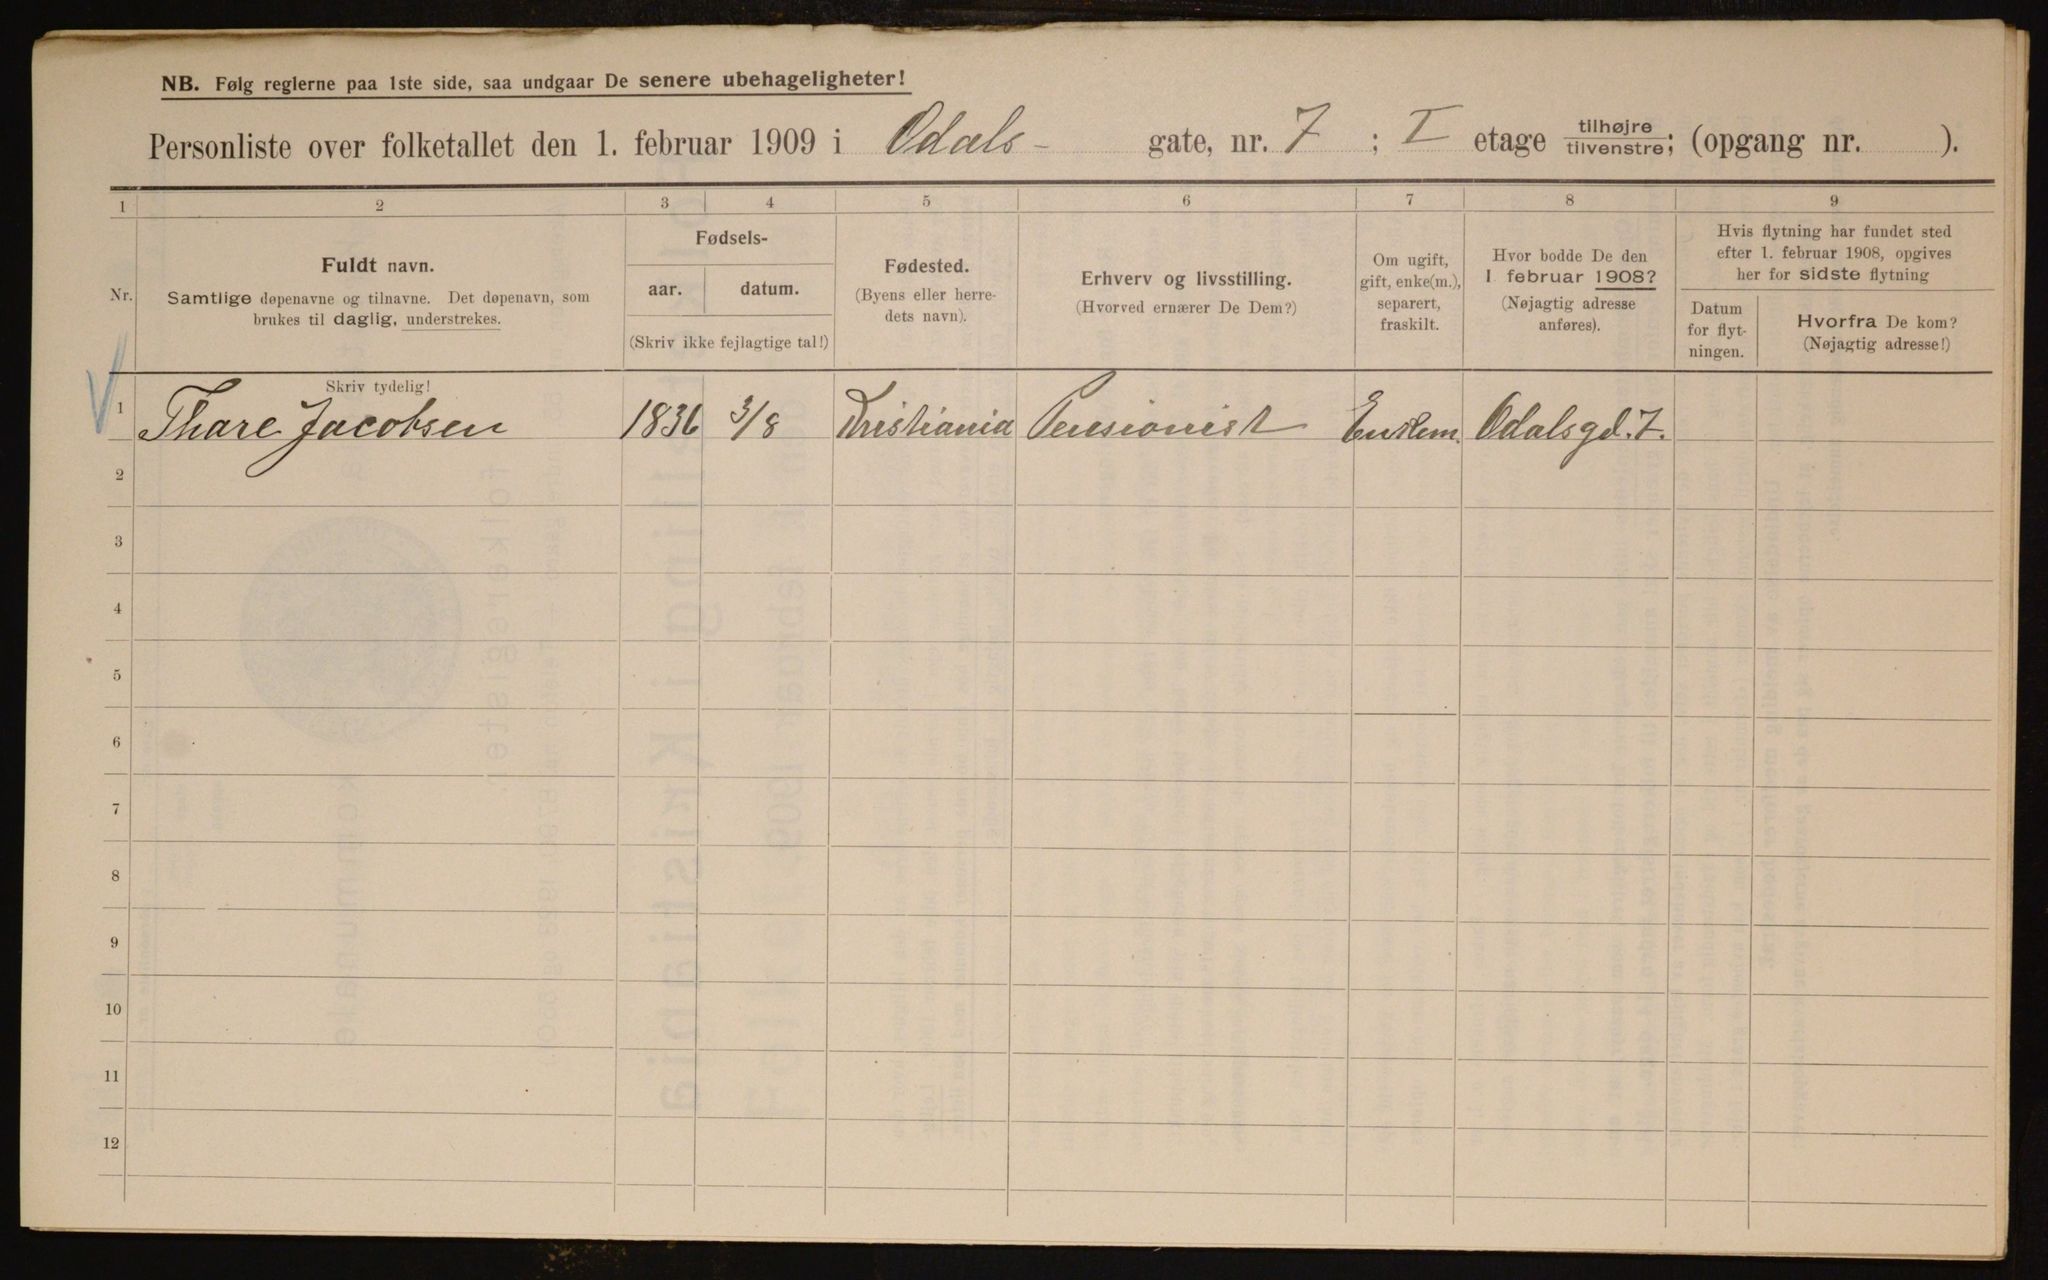 NB. Følg reglerne paa 1ste side, saa undgaar De senere ubehageligheter!
Personliste over folketallet den 1. februar 1909 i Odals- gate, nr. 7 ; I etage tilhøjre tilvenstre; (opgang nr. ).
1 2 3 4 5 6 7 8 9
Nr.
Fuldt navn.
Samtlige døpenavne og tilnavne. Det døpenavn, som
brukes til daglig, understrekes.
Skriv tydelig!
Fødsels-
aar. datum.
(Skriv ikke fejlagtige tal!)
Fødested.
(Byens eller herre-
dets navn).
Erhverv og livsstilling.
(Hvorved ernærer De Dem?)
Om ugift,
gift, enke(m.),
separert,
fraskilt.
Hvor bodde De den
1. februar 1908?
(Nøjagtig adresse
anføres).
Hvis flytning har fundet sted
efter 1. februar 1908, opgives
her for sidste flytning
Datum
for flyt-
ningen.
Hvorfra De kom?
(Nøjagtig adresse!)
1 Thare Jacobsen 1836 3/8 Kristiania Pensionist Enkem. Odalsgd. 7.
2
3
4
5
6
7
8
9
10
11
12